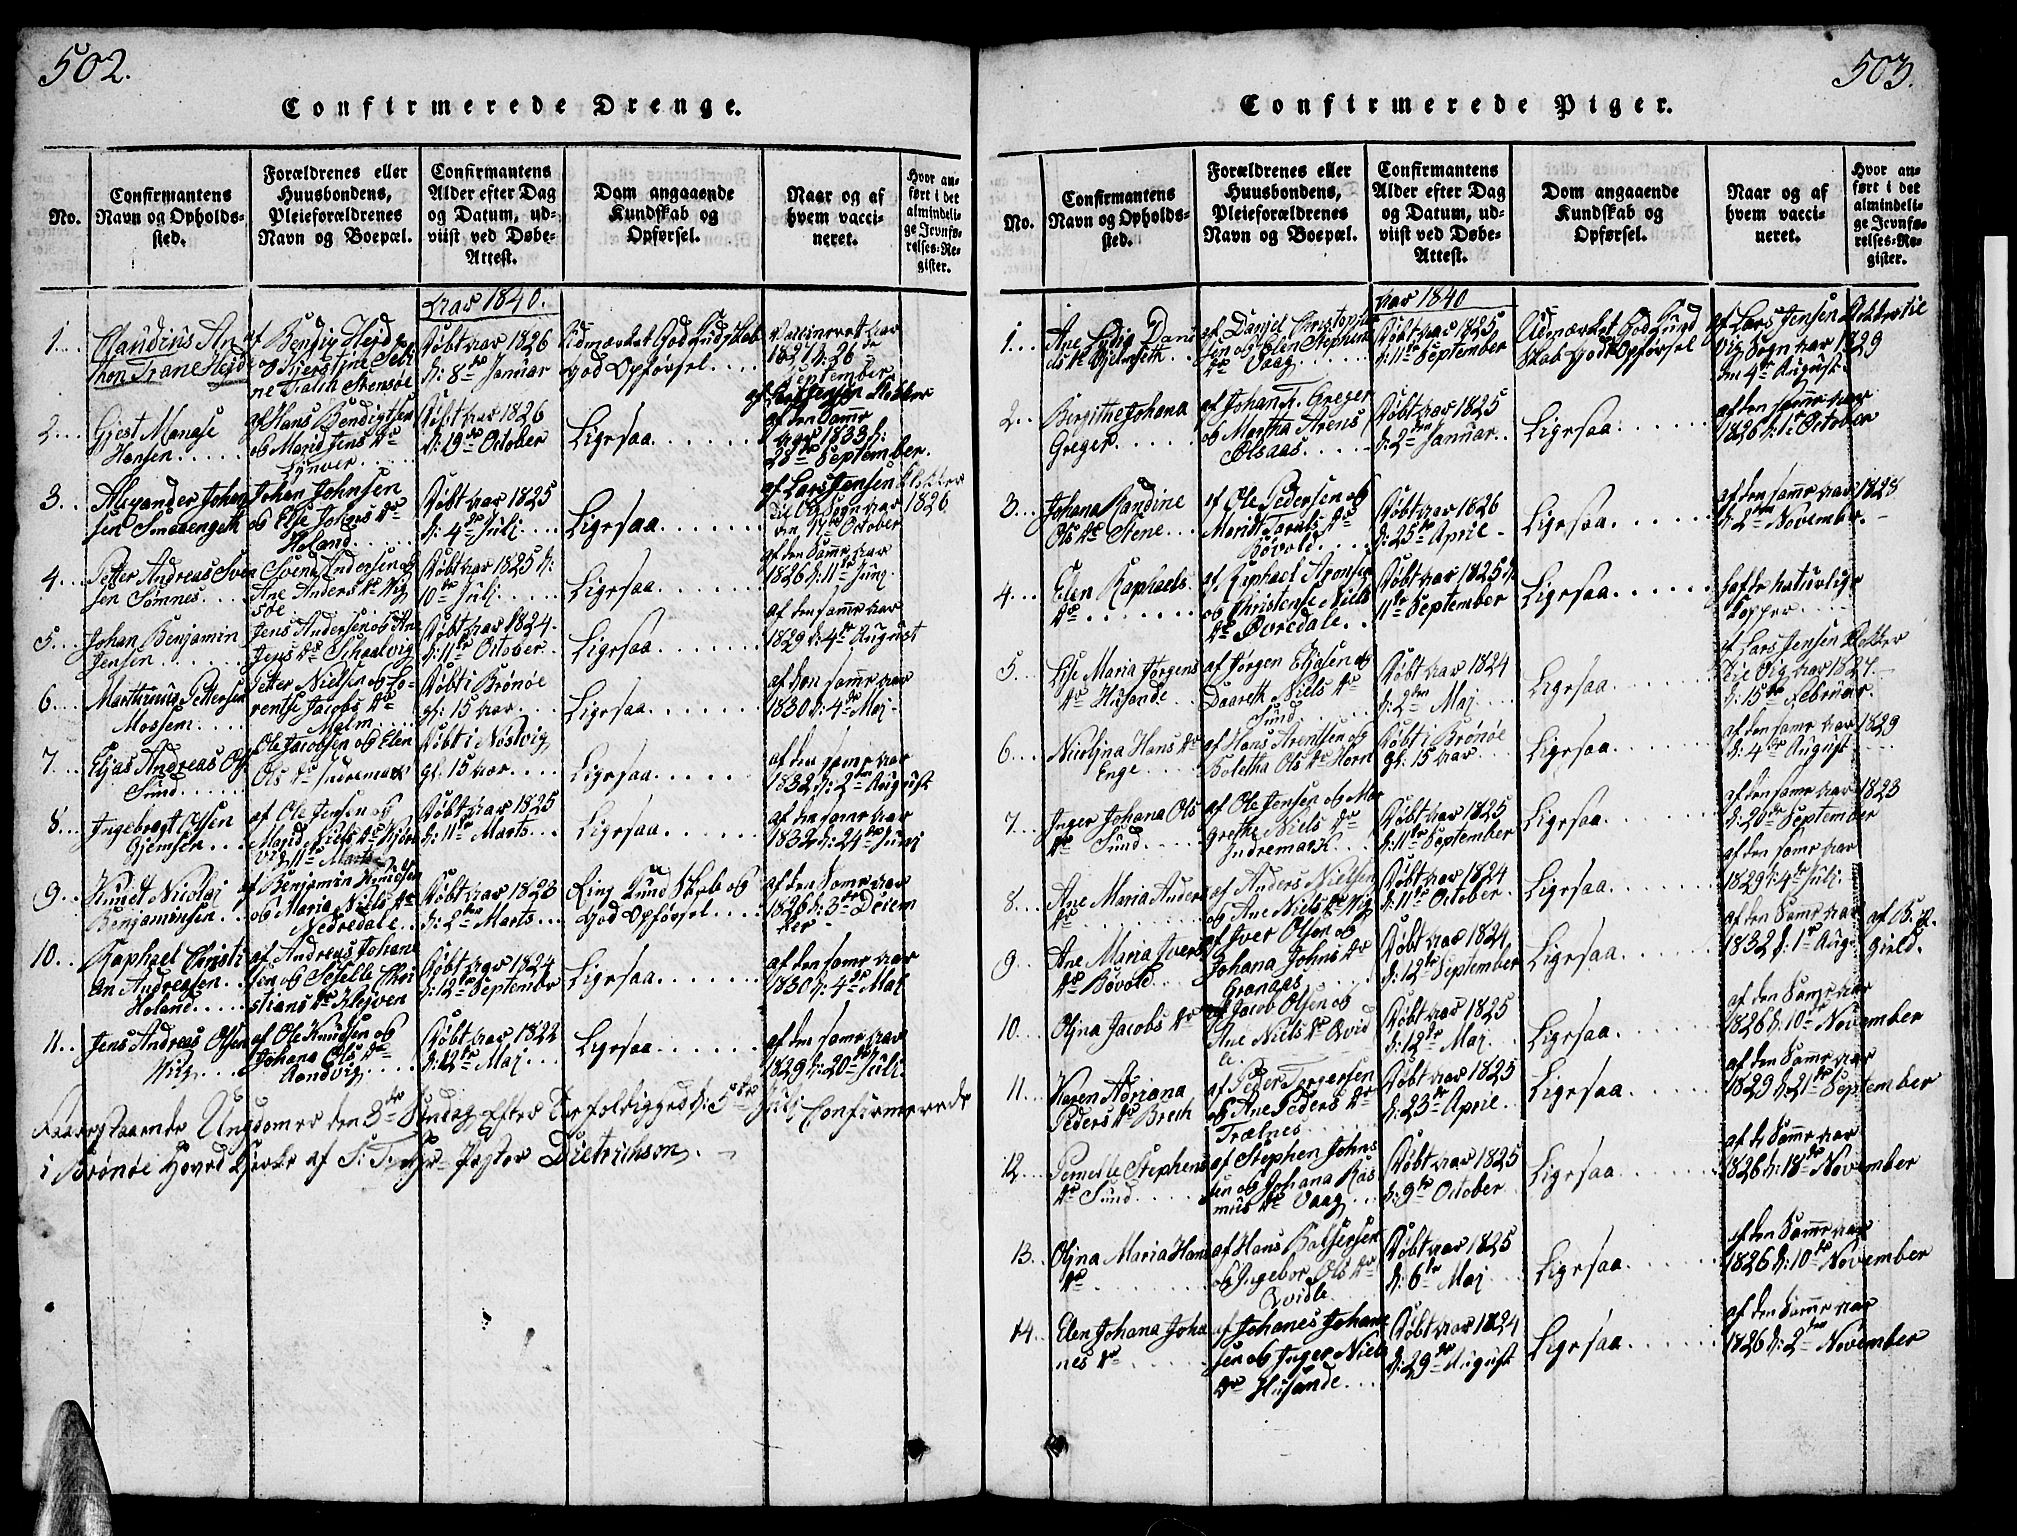 502.
Confirmerede Drenge.
No.
Confirmantens
Navn og Opholds-
sted.
Forældrenes eller
Huusbondens,
Pleieforældrenes
Navn og Boepæl.
Confirmantens
Alder efter Dag
og Datum, ud-
viist ved Døbe-
Attest.
Dom angaaende
Kundskab og
Opførsel.
Naar og af
hvem vacci-
neret.
Hvor an-
ført i det
almindeli-
ge Jevnfø-
relses-Re-
gister.
Aar 1840.
1
Claudius An
thon Trane Hejde
af Bendix Hejde
og Kjerstine Seli
ne Falch Stensøe
Døbt Aar 1826
d: 8de Januar
Udmærket God Kundskab
God Opførsel
Vaccineret Aar
1827 d: 26de
September
af Lars Jensen Klokker
2
Gjest Monase
Hansen
af Hans Bendigtsen
og Marid Jens Dr
Lynver
Døbt Aar 1826
d: 19de October
Ligesaa
af den Samme
Aar 1833 d:
28de September.
3
Alexander Johan
sen Smaaengeth
Johan Johnsen
og Else Johans Dr
Holand
Døbt Aar 1825
d: 4de Julj
Ligesaa
af Lars Jensen Klokker
til Vig Sogn Aar 1826
den 17de October
4
Petter Andreas Sven
sen Sømnes
Svend Andersen og
Ane Anders Dr Vig
søe
Døbt Aar 1825 d:
10de Julj
Ligesaa
af den Samme Aar
1826 d: 11te Junj
5
Johan Benjamin
Jensen
Jens Andersen og Ane
Jens Dr Schaalvig
Døbt Aar 1824
d: 11te October
Ligesaa
af den samme Aar
1829 d: 4de August
6
Marthinus Pettersen
Mossem
Petter Nielsen og Lo
rentse Jacobs Dr
Malm
Døbt i Brønøe
gl: 15 Aar
Ligesaa
af den samme Aar
1830 d: 4de Maj
7
Eljas Andreas Ols
Sund
Ole Jacobsen og Elen
Ols Dr Indremark
Døbt i Nøstvig
gl: 15 Aar
Ligesaa
af den samme Aar
1832 d: 2den August
8
Ingebregt Olsen
Gjemsen
af Ole Jensen og
Marid Niels Dr Kjer
vig 11te Marts
Døbt Aar 1825
d: 11te Marts
Ligesaa
af den samme Aar
1832 d: 24de Junj
9
Knudt Nicolaj
Benjaminsen
af Benjamin Knudsen
og Maria Niels Dr
Nedredale
Døbt Aar 1823
d: 2den Marts
Ring Kundskab og
God Opførsel
af den Samme Aar
1826 d: 3de Decem
ber
10
Raphael Christi
an Andreasen
Holand
af Andreas Johane
sen og Sejelle Chri
stians Dr Klejven
Døbt Aar 1824
d: 12te September
Ligesaa
af den samme Aar
1830 d: 4de Maj
11
Jens Andreas Olsen
Viig
af Ole Knudsen og
Johana Ols Dr
Aandvig
Døbt Aar 1822
d: 12te Maj
Ligesaa
af den samme Aar
1829 d: 20de Julj
Foranstaaende Ungdomer den 3de Søndag Efter Trefoldigged d: 5te Julj Confirmerede
i Brønøe Hoved Kjerke af Pastor Dietrichson
503.
Confirmerede Piger.
No.
Confirmantens
Navn og Opholds-
sted.
Forældrenes eller
Huusbondens,
Pleieforældrenes
Navn og Boepæl.
Confirmantens
Alder efter Dag
og Datum, ud-
viist ved Døbe-
Attest.
Dom angaaende
Kundskab og
Opførsel.
Naar og af
hvem vacci-
neret.
Hvor an-
ført i det
almindeli-
ge Jevnfø-
relses-Re-
gister.
Aar 1840
1
Ane Lydig Dani
els Dr Gjelmseth
af Daniel Christophe
sen og Elen Stephens
Dr Vaag
Døbt Aar 1825
d: 11te September
Udmærket God Kund
skab Godt Opførsel
af Lars Jensen Klokker til
Vig Sogn Aar 1829
den 4de August
2
Birgithe Johana
Greger
af Johan F. Greger
og Martha Arens
Ølsaas
Døbt Aar 1825
d: 2den Januar
Ligesaa
af den samme Aar
1826 d: 1te October
3
Johana Randine
Ols Dr Stene
af Ole Pedersen og
Marit Tarals Dr
Bøvold
Døbt Aar 1826
d: 25te April
Ligesaa
af den samme Aar 1828
d: 2den November
4
Elen Raphaels
Dr
af Raphael Aronsen
og Christense Niels
Dr Øvredale
Døbt Aar 1825 d:
11te September
Ligesaa
hafte naturlige
Kopper
5
Lise Maria Jørgens
Dr Husande
af Jørgen Eljasen og
Daareth Niels Dr
Sund
Døbt Aar 1824
d: 2den Maj
Ligesaa
af Lars Jensen Klokker
til Vig Aar 1827
d: 15de Februar
6
Nicoljna Hans Dr
Enge
af Hans Arentsen og
Boletha Ols Dr Horn
Døbt i Brønøe
gl: 15 Aar
Ligesaa
af den samme Aar 1829
d: 4de August
7
Inger Johana Ols
Dr Sund
af Ole Jensen og Mar
grethe Niels Dr
Indremark
Døbt Aar 1825
d: 11te September
Ligesaa
af den samme Aar 1823
d: 20de September
8
Ane Maria Anders
Dr
af Anders Nielsen
og Ane Niels Dr Vig
Døbt Aar 1824
d: 11te October
Ligesaa
af den samme Aar
1829 d: 4de Julj
9
Ane Maria Ivers
Dr Bøvold
af Iver Olsen og
Johana Johns Dr
Granaas
Døbt Aar 1824
d: 12te September
Ligesaa
af den Samme Aar
1832 d: 1te Aug:
10
Oljna Jacobs Dr
af Jacob Olsen og
Ane Niels Dr Qvid
le
Døbt Aar 1825
d: 12te Maj
Ligesaa
af den Samme Aar
1826 d: 10de November
11
Karen Adriana
Peders Dr Brech
af Peder Torgersen
og Ane Peders Dr
Trælnes
Døbt Aar 1825
d: 23de April
Ligesaa
af den Samme Aar
1829 d: 21de September
12
Pernelle Stephens
Dr Sund
af Stephen Johns
sen og Johana Ras
mus Dr Vaag
Døbt Aar 1825
d: 9de October
Ligesaa
af d: Samme Aar
1826 d: 18de November
13
Oljna Maria Hans
Dr
af Hans Baltsersen
og Ingebor Ols Dr
Qvidle
Døbt Aar 1825
d: 6te Maj
Ligesaa
af den Samme Aar
1826 d: 10de November
14
Elen Johana Joha
nes Dr
af Johanes Johane
sen og Inger Niels
Dr Husande
Døbt Aar 1824
d: 29de August
Ligesaa
af den Samme Aar
1826 d: 2den November